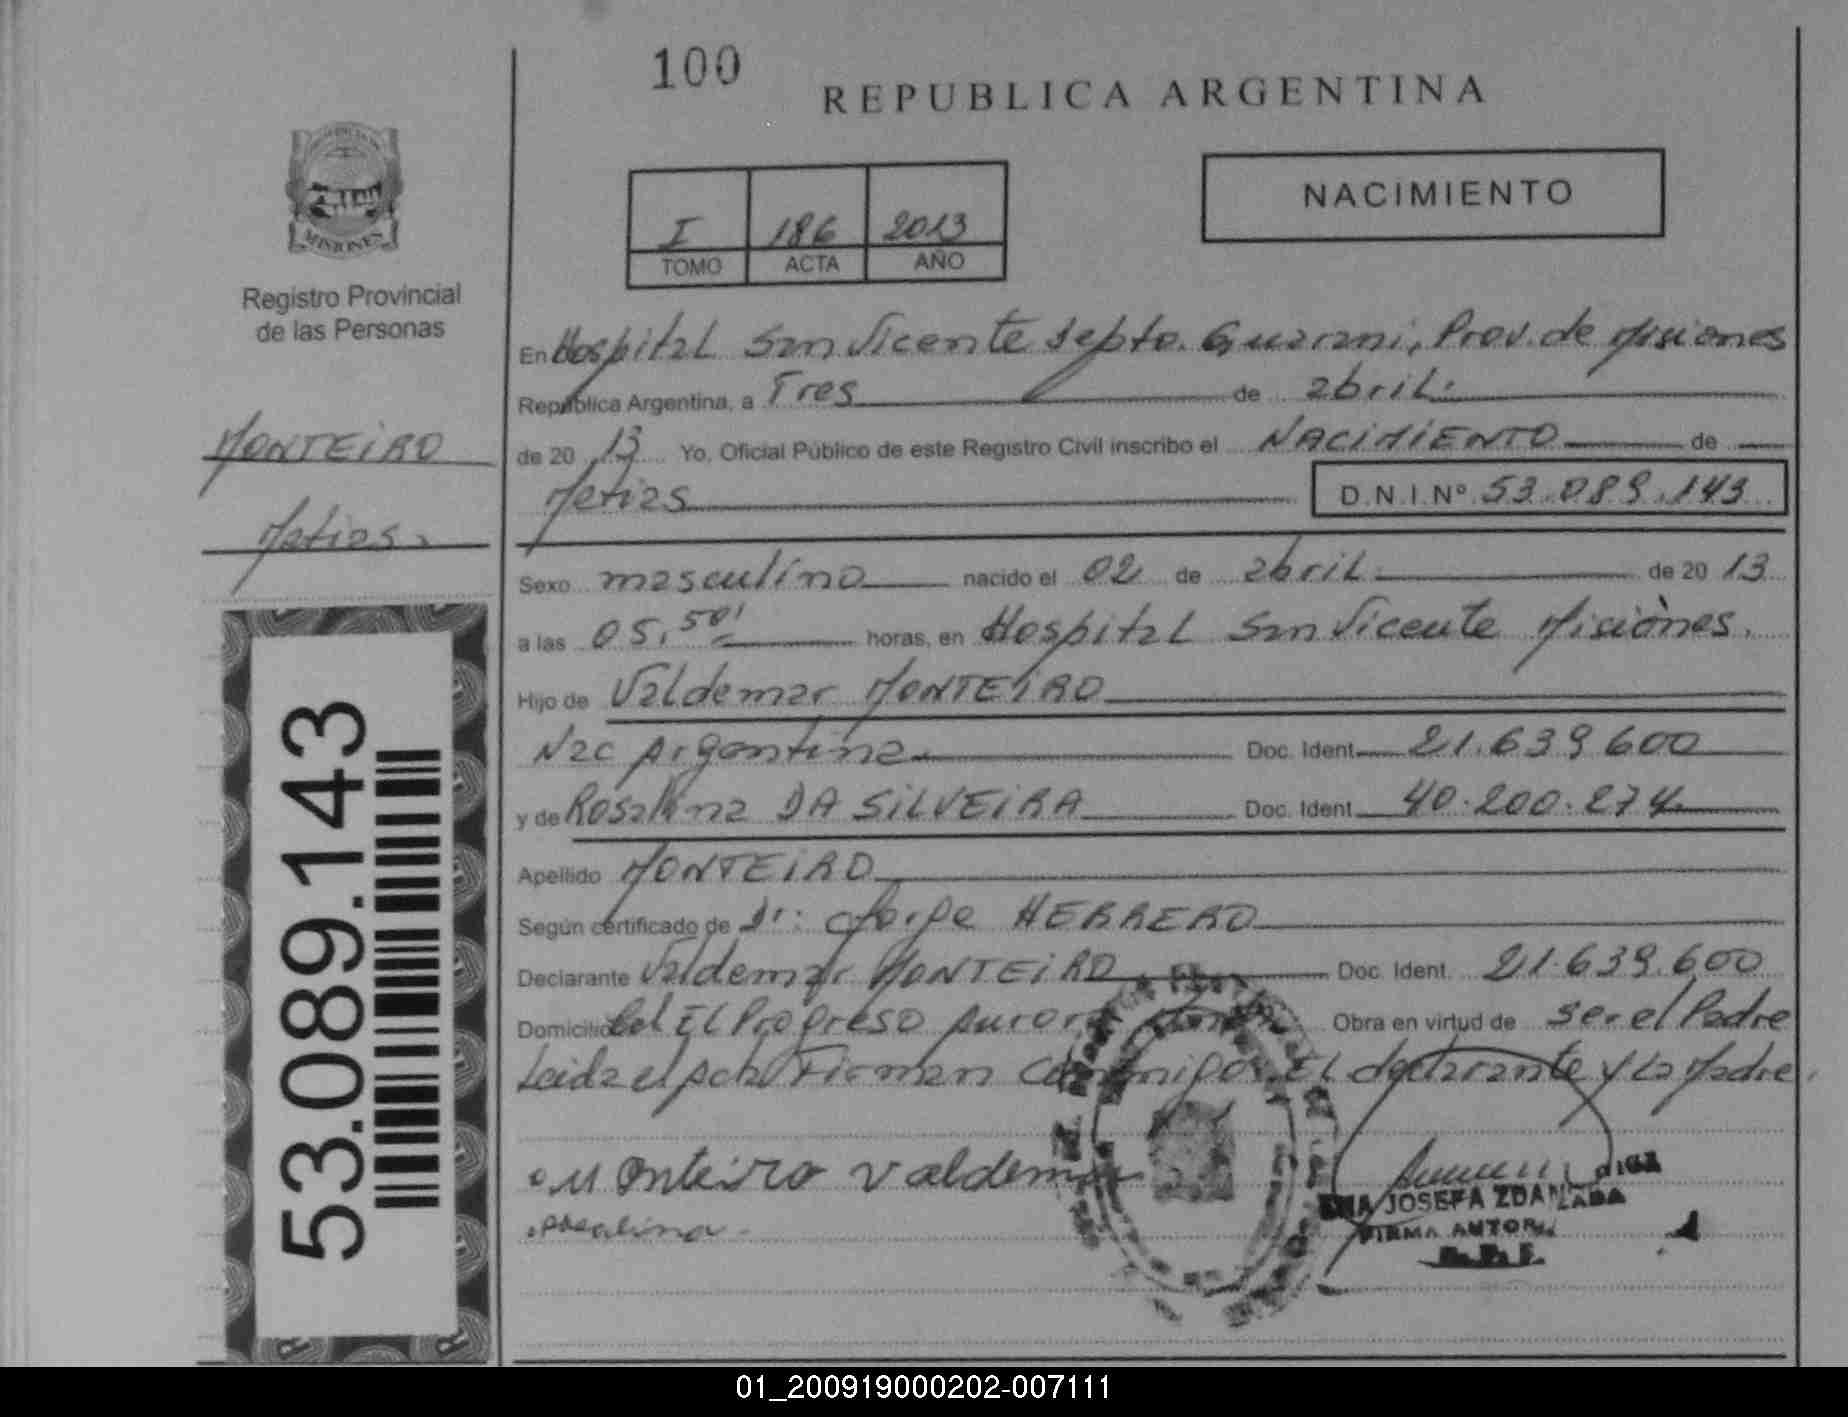 100
REPUBLICA ARGENTINA
NACIMIENTO
I 186 2013
TOMO ACTA AÑO
MISIONES
Registro Provincial
de las Personas
MONTEIRO
Matias.
53.089.143
En Hospital San Vicente depto. Guarani, Prov. de Misiones
República Argentina, a Tres de abril.
de 20 13 Yo, Oficial Público de este Registro Civil inscribo el NACIMIENTO de
Matias D.N.I.Nº 53.089.143
Sexo masculino nacido el 02 de abril de 20 13
a las 05,50' horas, en Hospital San Vicente Misiones.
Hijo de Valdemar MONTEIRO
Nac Argentina Doc. Ident. 21.639.600
y de Rosalina DA SILVEIRA Doc. Ident. 40.200.274
Apellido MONTEIRO
Según certificado de Dr: Jorge HERRERO
Declarante Valdemar MONTEIRO Doc. Ident. 21.639.600
Domicilio Col El Progreso Aurora Obra en virtud de ser el Padre
Leida el acta Firman Conmigo El declarante y La Madre.
Monteiro Valdemar
Rosalina
JOSEFA
FIRMA AUTOR
01_200919000202-007111